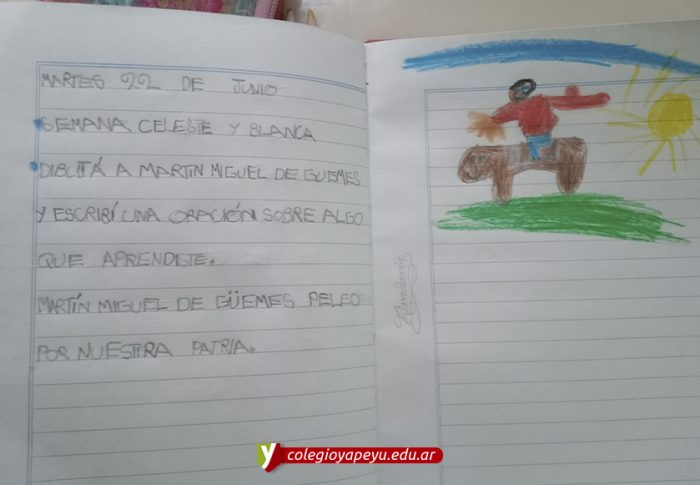 MARTES 22 DE JUNIO
SEMANA CELESTE Y BLANCA
DIBUJÁ A MARTIN MIGUEL DE GUEMES
Y ESCRIBÍ UNA ORACIÓN SOBRE ALGO
QUE APRENDISTE.
MARTÍN MIGUEL DE GÜEMES PELEO
POR NUESTRA PATRIA.
Rivadavia
y colegioyapeyu.edu.ar